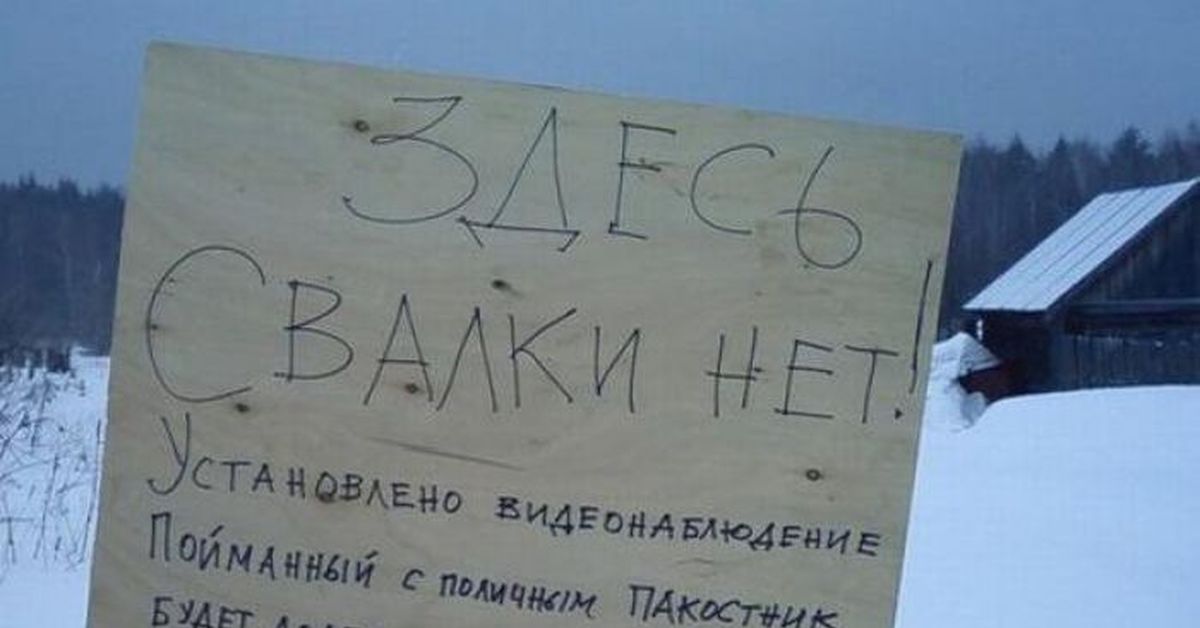 ЗДЕСЬ
СВАЛКИ НЕТ!
УСТАНОВЛЕНО ВИДЕОНАБЛЮДЕНИЕ
ПОЙМАННЫЙ С ПОЛИЧНЫМ ПАКОСТНИК
БУДЕТ